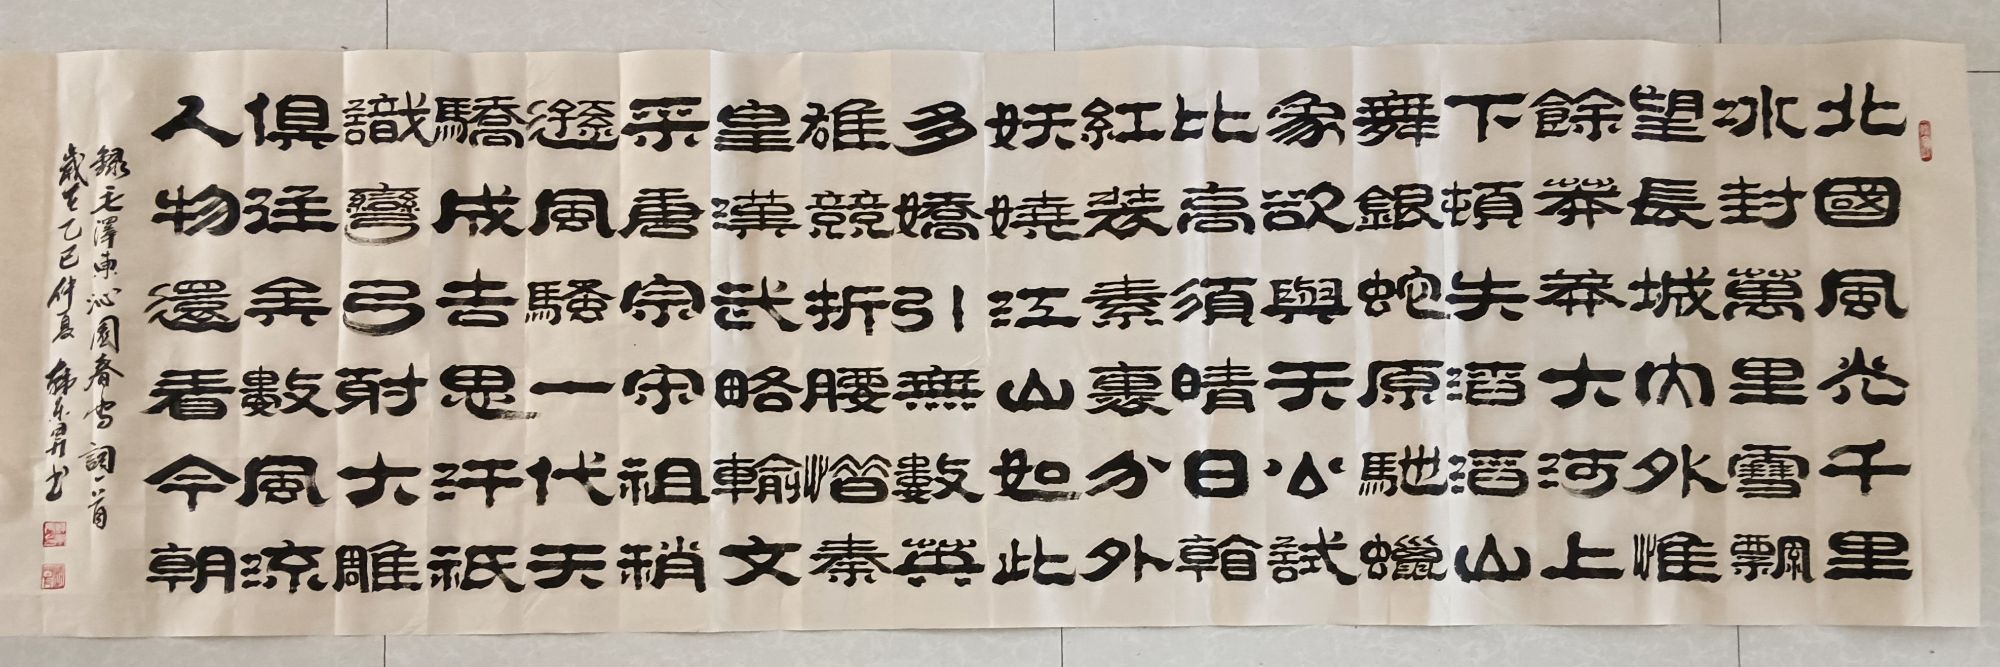 北國風光千里
冰封萬里雪飄
望長城内外惟
餘莽莽大河上
下頓失滔滔山
舞銀蛇原馳蠟
象欲與天公試
比高須晴日看
紅裝素裹分外
妖嬈江山如此
多嬌引無數英
雄競折腰惜秦
皇漢武略輸文
采唐宗宋祖稍
遜風騷一代天
驕成吉思汗祇
識彎弓射大雕
俱往矣數風流
人物還看今朝
錄毛澤東沁園春雪詞一首
歲在乙巳仲夏韩东昇书